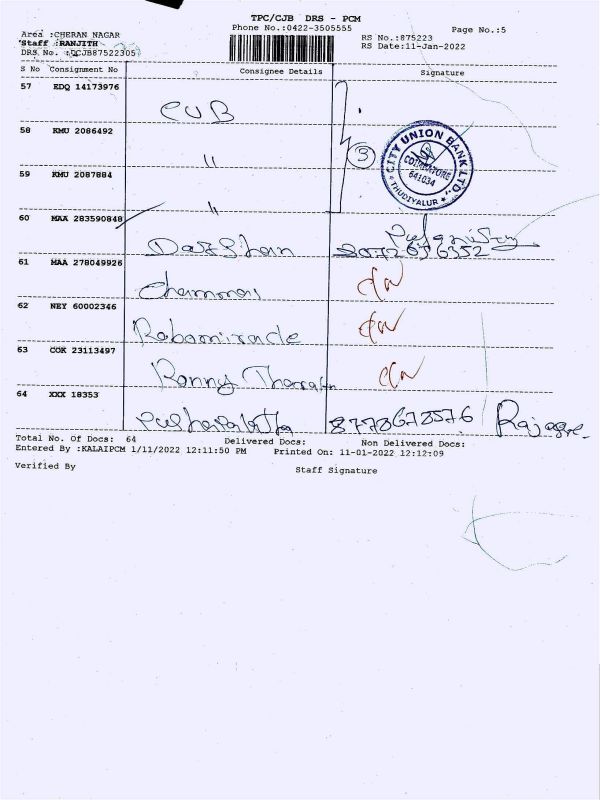 TPC/CJB DRS - PCM
Phone No.:0422-3505555
Page No.:5
Area :CHERAN NAGAR
Staff :RANJITH
DRS No. :DCJB87522305
RS No.:875223
RS Date:11-Jan-2022
S No Consignment No Consignee Details Signature
57 EDQ 14173976 CUB
58 KMU 2086492 "
3
CITY UNION BANK LTD., THUDIYALUR
COIMBATORE
641034
59 KMU 2087884 "
60 MAA 283590848 Darshan
61 MAA 278049926
62 NEY 60002346
63 COK 23113497 Ronny
64 XXX 18353 8778678576
Total No. Of Docs: 64 Delivered Docs: Non Delivered Docs:
Entered By :KALAIPCM 1/11/2022 12:11:50 PM Printed On: 11-01-2022 12:12:09
Verified By Staff Signature